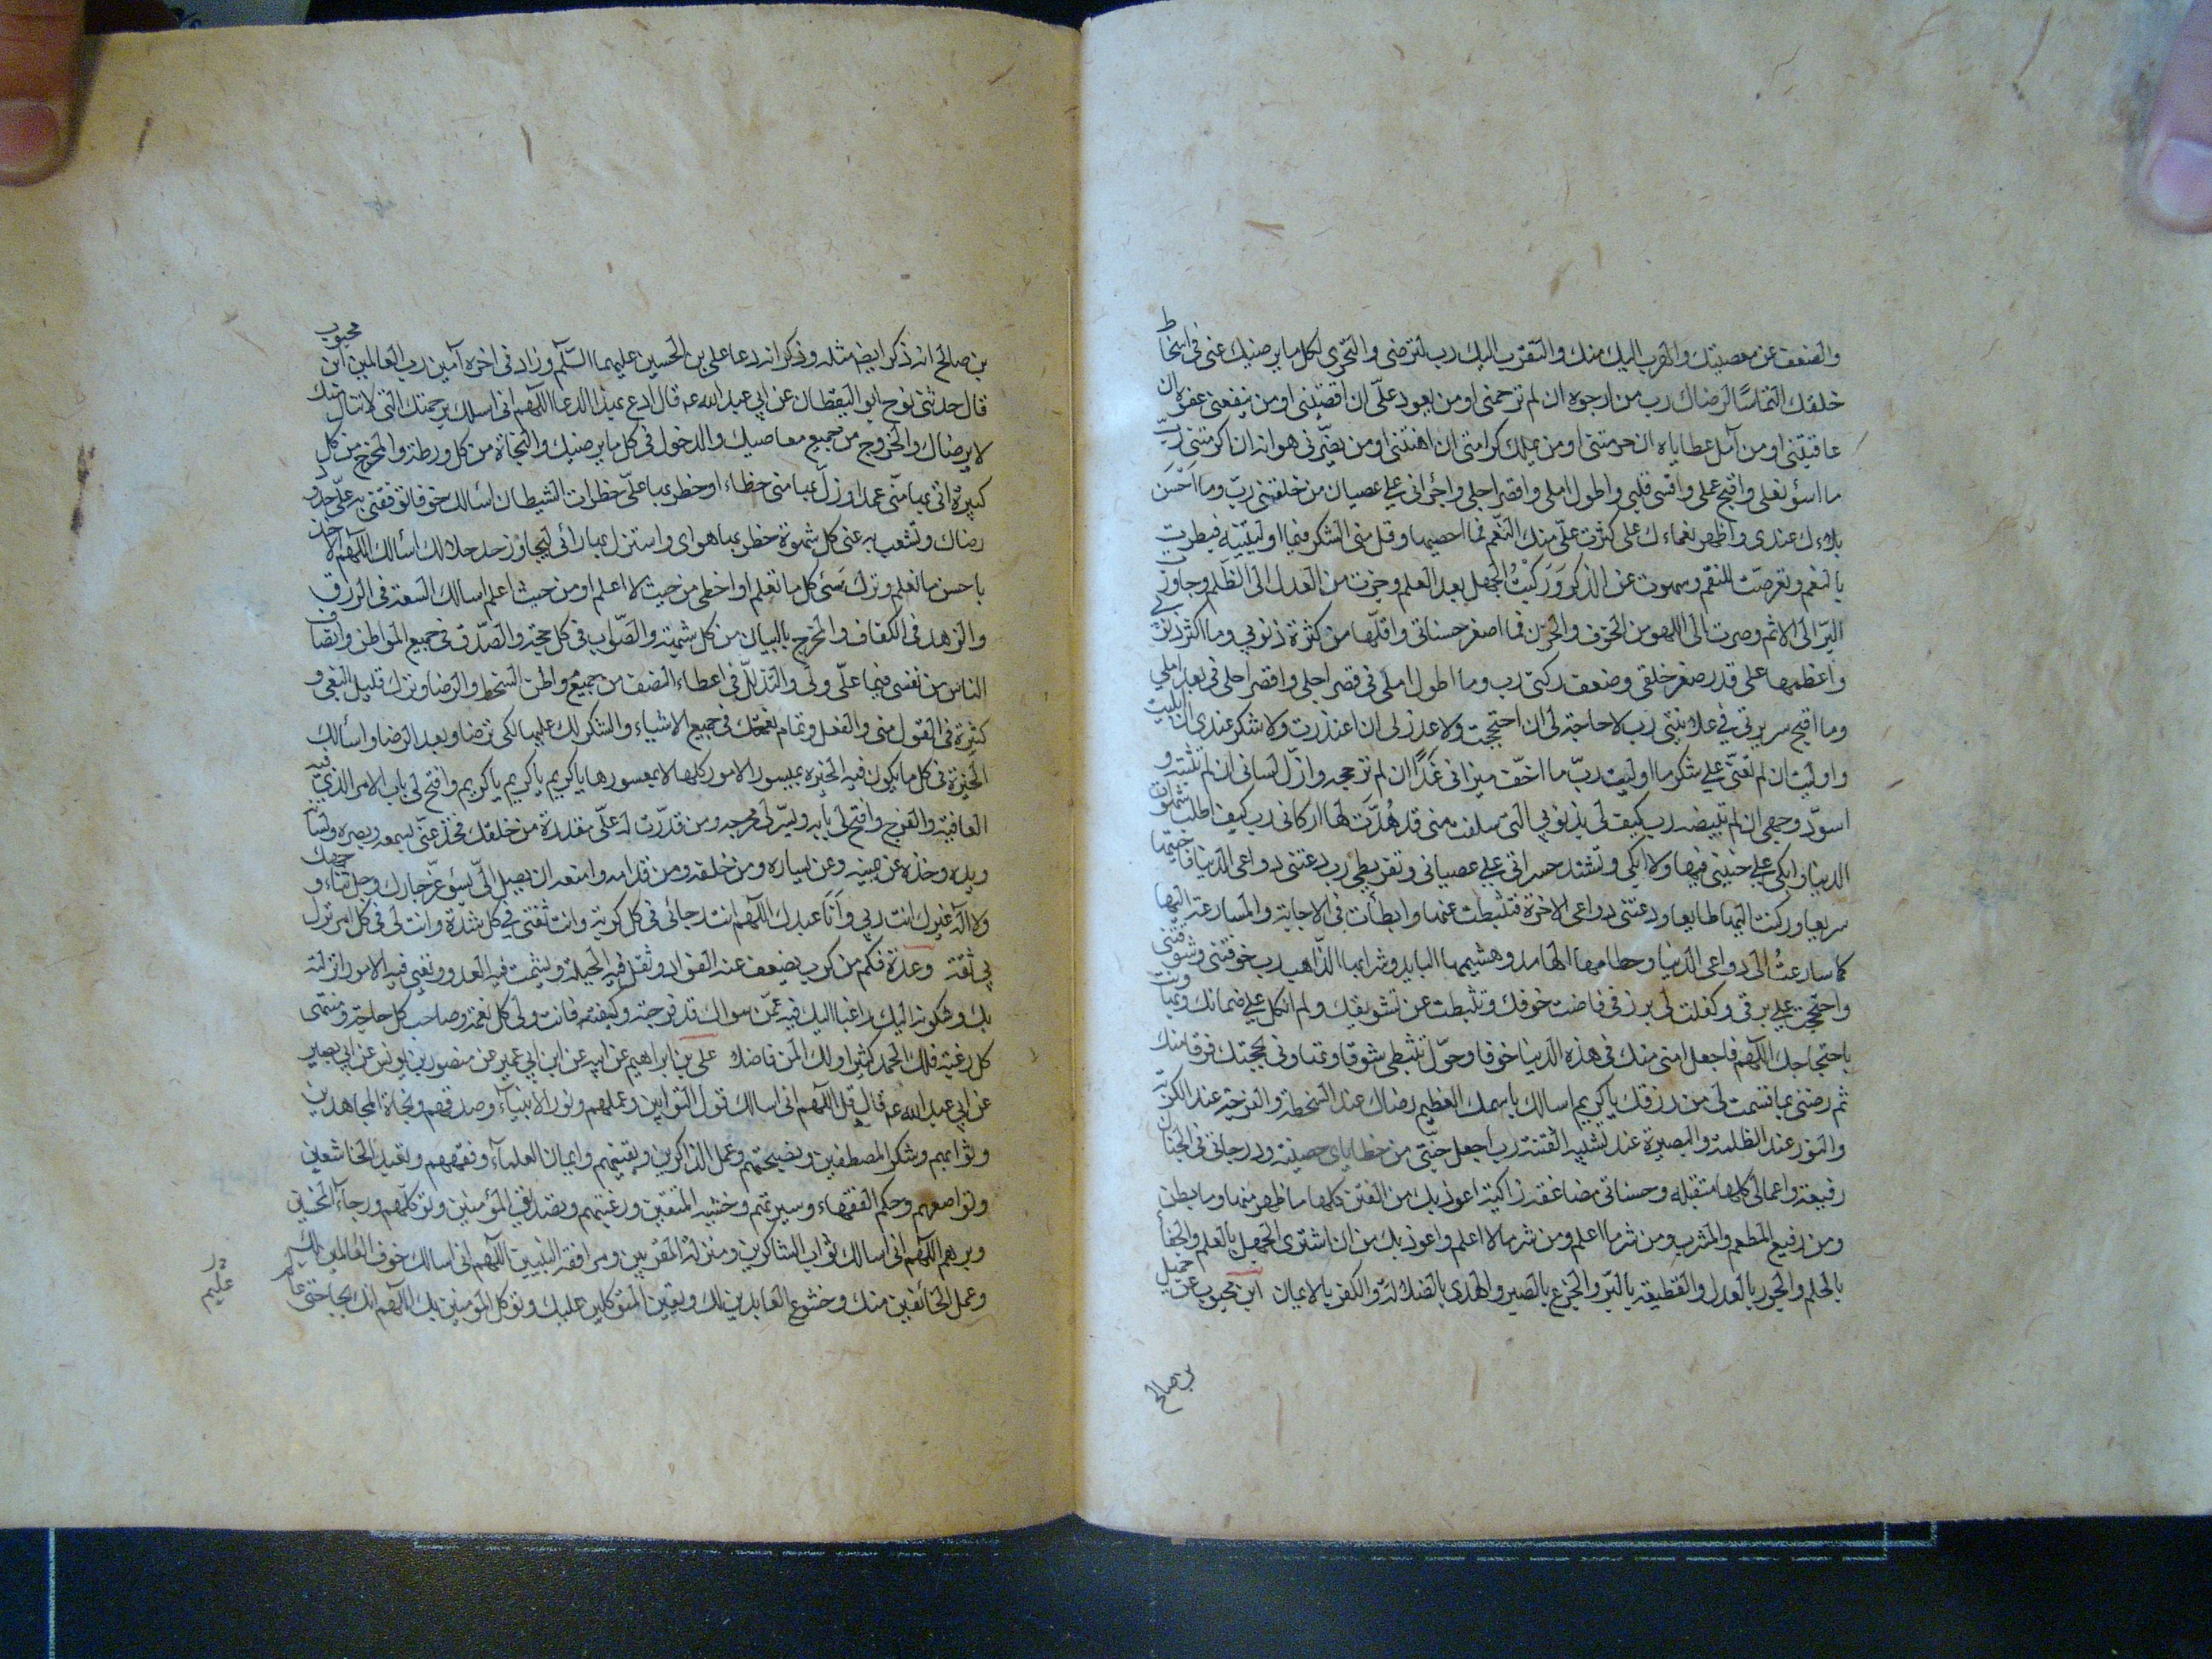 والضعف عن معصيتك والهرب اليك منك والتقرب اليك رب لترضى والتحري لكل ما يرضيك عنى فى اسخاط
خلقك التماسا لرضاك رب من ارجوه ان لم ترحمنى او من يعود علىّ ان اقصيتنى او من ينفعنى عفوه ان
عاقبتنى او من آمل عطاياه ان حرمتنى او من يملك كرامتى ان اهنتنى او من يضرنى هوانه ان اكرمتنى رب
ما اسوء فعلى واقبح عملى واقسى قلبى واطول املى واقصر اجلى واجرانى على عصيان من خلقنى رب وما احسن
بلاءك عندى واظهر نعماءك على كثرت علىّ منك النعم فما احصيها وقل منى الشكر فيما اوليتنيه فبطرت
بالنعم وتعرضت للنقم وسهوت عن الذكر وركبت الجهل بعد العلم وجزت من العدل الى الظلم وجاوزت
البر الى الاثم وصرت الى اللهو من الخوف والحزن فما اصغر حسناتى واقلها من كثرة ذنوبى وما اكثر ذنوبى
واعظمها على قدر صغر خلقى وضعف ركنى رب وما اطول املى فى قصر اجلى واقصر اجلى فى بعد املى
وما اقبح سريرتى فى علانيتى رب لا حاجة لى ان احتججت ولا عذر لى ان اعتذرت ولا شكر عندى ان ابليت
واوليت ان لم تعنى على شكر ما اوليت رب ما اخف ميزانى غدا ان لم ترجحه وازل لسانى ان لم تثبته و
اسود وجهى ان لم تبيضه رب كيف لى بذنوبى التى سلفت منى قد هدت لها اركانى رب كيف اطلب شهوات
الدنيا وابكى على خيبتى فيها ولا ابكى وتشتد حسراتى على عصيانى وتفريطى رب دعتنى دواعى الدنيا فاجبتها
سريعا وركنت اليها طايعا ودعتنى دواعى الاخرة فتثبطت عنها وابطأت فى الاجابة والمسارعة اليها
كما سارعت الى دواعى الدنيا وحطامها الهامد وهشيمها البايد وشرابها الذاهب رب خوفتنى وشوقتنى
واحتججت على برقى وكفلت لى برزقى فامنت خوفك وتثبطت عن تشويقك ولم اتكل على ضمانك وتهاونت
باحتجاجك اللهم فاجعل امنى منك فى هذه الدنيا خوفا وحول تثبطى شوقا وتهاونى بحجتك فرقا منك
ثم رضنى بما قسمت لى من رزقك يا كريم اسالك باسمك العظيم رضاك عند السخطة والفرجة عند الكربة
والنور عند الظلمة والبصيرة عند تشبيه الفتنة رب اجعل جنتى من خطاياى حصينة ودرجاتى فى الجنان
رفيعة واعمالى كلها متقبلة وحسناتى مضاعفة زاكية اعوذ بك من الفتن كلها ما ظهر منها وما بطن
ومن رفيع المطعم والمشرب ومن شر ما اعلم ومن شر ما لا اعلم واعوذ بك من ان اشترى الجهل بالعلم والجفا
بالحلم والجور بالعدل والقطيعة بالبر والجزع بالصبر والهدى بالضلالة والكفر بالايمان ابن محبوب عن جميل
بن صالح
بن صالح انه ذكر ايضا مثله وذكر انه دعا على بن الحسين عليهما السلام وزاد فى اخره آمين رب العالمين ابن محبوب
قال حدثنى نوح ابو اليقظان عن ابى عبد الله عه قال ادع بهذا الدعا اللهم انى اسلك برحمتك التى لا تنال منك
لا برضاك والخروج من جميع معاصيك والدخول فى كل ما يرضيك والنجاة من كل ورطة والمخرج من كل
كبيرة اتى بها منى عمد او زل بها منى خطاء او خطر بها على خطرات الشيطان اسالك خوفا توقفنى به على حدود
رضاك وتشعب به عنى كل شهوة خطر بها هواى واستزل بها رائى ليجاوز حد حلالك اسالك اللهم الاخذ
باحسن ما تعلم وترك سئ كل ما تعلم او اخطى من حيث لا اعلم او من حيث اعلم اسالك السعة فى الرزق
والزهد فى الكفاف والمخرج بالبيان من كل شبهة والصواب فى كل حجة والصدق فى جميع المواطن وانصاف
الناس من نفسى فيما على ولى والتذلل فى اعطاء النصف من جميع مواطن السخط والرضا وترك قليل البغى و
كثيره فى القول منى والفعل وتمام نعمتك فى جميع الاشياء والشكر لك عليها لكى ترضا وبعد الرضا واسالك
الخيرة فى كل ما يكون فيه الخيره بميسور الامور كلها لا بمعسورها يا كريم يا كريم يا كريم وافتح لى باب الامر الذى فيه
العافية والفرج وافتح لى بابه ويسر لى مخرجه ومن قدرت له على مقدرة من خلقك فخذ عنى بسمعه وبصره ولسانه
ويده وخذه عن يمينه وعن يساره ومن خلفه ومن قدامه وامنعه ان يصل الى بسوء عز جارك وجل ثناء وجهك
ولا اله غيرك انت ربى وانا عبدك اللهم انت رجائى فى كل كربة وانت ثقتى فى كل شدة وانت لى فى كل امر نزل
بى ثقة وعدة فكم من كرب يضعف عنه الفواد وتقل فيه الحيلة ويشمت فيه العدو وتعيى فيه الامور انزلته
بك وشكوته اليك راغبا اليك فيه عمن سواك قد فرجته وكفيته فانت ولى كل نعمة وصاحب كل حاجة ومنتهى
كل رغبة فلك الحمد كثيرا ولك المن فاضلا على بن ابراهيم عن ابيه عن ابن ابى عمير عن منصور بن يونس عن ابى بصير
عن ابى عبد الله عه قال قل اللهم انى اسالك قول التوابين وعملهم ونور الانبياء وصدقهم ونجاة المجاهدين
وثوابهم وشكر المصطفين ونصيحتهم وعمل الذاكرين ويقينهم وايمان العلماء وفقههم وتعبد الخاشعين
وتواضعهم وحكم الفقهاء وسيرتهم وخشية المتقين ورغبتهم وتصديق المؤمنين وتوكلهم ورجاء المحسنين
وبرهم اللهم انى اسالك ثواب الشاكرين ومنزلة المقربين ومرافقة النبيين اللهم انى اسالك خوف العاملين لك
وعمل الخائفين منك وخشوع العابدين لك ويقين المتوكلين عليك وتوكل المؤمنين بك اللهم انك بحاجتى عالم